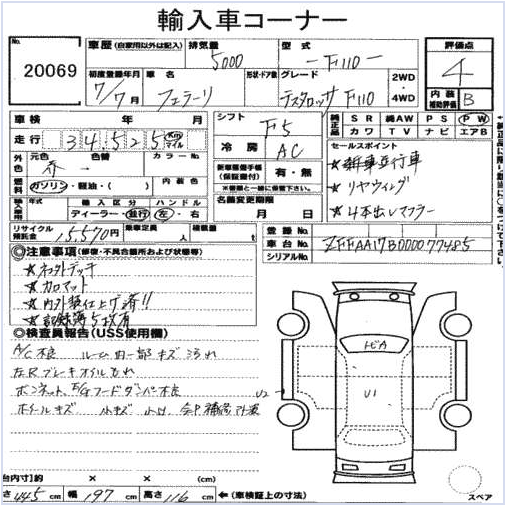 輸入車コーナー
No.
20069
車歴 (自家用以外は記入)
排気量
5000
型式
F110
評価点
4
初度登録年月
7/7月
車名
フェラーリ
形状・ドア数
グレード
テスタロッサ F110
2WD
4WD
内装
補助評価
B
車検 年 月
走行 34,525 Km マイル
シフト
F5
冷房
AC
純正品
SR 純AW PS PW
カワ TV ナビ エアB
外色
元色 色替 カラーNo.
赤 →
燃料
ガソリン・軽油・( )
内装色
新車整備手帳
(保証書付)
有・無
セールスポイント
★ 新車並行車
★ リヤウィング
★ 4本出しマフラー
輸入車用
年式 輸入区分 ハンドル
ディーラー・並行 左・右
名義変更期限
月 日
リサイクル預託金
15,570円
乗車定員
人
積載量
登録No.
車台No.
ZFFAA17B000077485
シリアルNo.
◎注意事項 (修復・不具合箇所および状態等)
★ カロマット
★ 内外装仕上げ済!!
★ 記録簿5枚有
◎検査員報告 (USS使用欄)
A/C不良 ルーム内一部キズ汚れ
左Rブレーキオイルもれ
ボンネット、E/Gフードダンパー不良
ホイールキズ 小キズ
トビA
U1
U2
台内寸)約 × × (cm)
さ 445 cm 幅 197 cm 高さ 116 cm ←(車検証上の寸法)
スペア